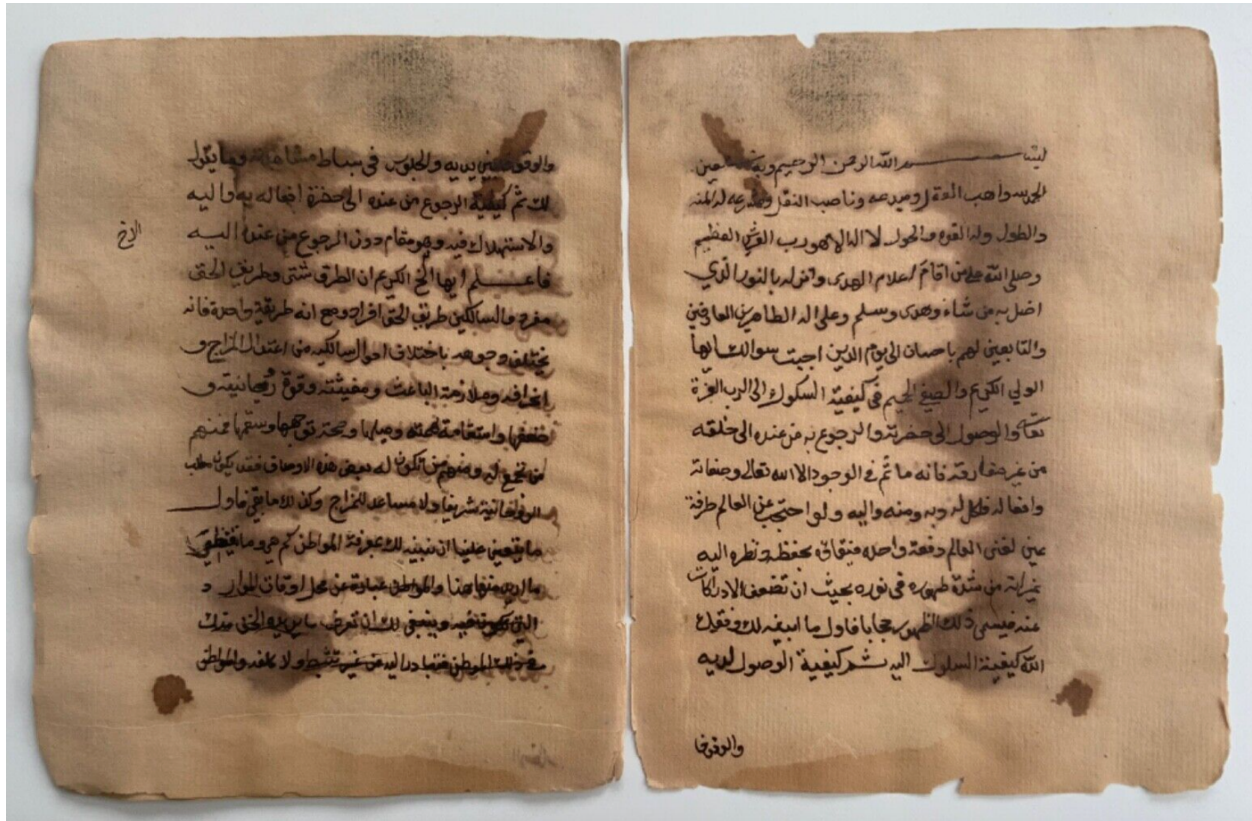 بسم الله الرحمن الرحيم وبه نستعين
الحمد لله واهب العقل ومبدعه وناصب النقل ومشرعه له المنه
والطول وله القوه والحول لا اله الا هو رب العرش العظيم
وصلى الله على من اقام اعلام الهدى وانزله بالنور الذي
اضل به من شاء وهدى وسلم وعلى اله الطاهرين
والتابعين لهم باحسان الى يوم الدين اجبت سوالك ايها
الولي الكريم والصفي الحميم في كيفية السلوك الى الرب العزة
تعالى والوصول الى حضرته والرجوع به من عنده الى خلقه
من غير مفارقه فانه ما ثم في الوجود الا الله تعالى وصفاته
وافعاله فالكل له وبه ومنه واليه ولو احتجب عن العالم طرفة
عين لفنى العالم دفعة واحده فبقاؤه بحفظه ونظره اليه
غير انه من شدة ظهوره في نوره بحيث ان تضعف الادراكات
عنه فيسمى ذلك الظهور حجابا فاول ما ابينه لك وفقك
الله كيفية السلوك اليه ثم كيفية الوصول لديه
والوقوف
والوقوف بين يديه والجلوس في بساط مشاهدته وما يقول
لك ثم كيفية الرجوع من عنده الى حضرة افعاله به واليه
والاستهلاك فيه وهو مقام دون الرجوع من عنده اليه
الاخ
فاعلم ايها الاخ الكريم ان الطرق شتى وطريق الحق
مفرد والسالكين طريق الحق افراد ومع انه طريقة واحدة فانه
يختلف وجوهه باختلاف احوال سالكيه من اعتدال المزاج و
انحرافه وملازمة الباعث ومغيبته وقوة روحانيته و
ضعفها واستقامة همته وميلها وصحة توجهها وسقمها فمنهم
من تجمع له ومنهم من تكون له بعض هذه الاوصاف فقد يكون مطلب
الروحانية شريفا ولا مساعد للمزاج وكذلك ما بقي فاول
ما يتعين علينا ان نبينه لك معرفة المواطن كم هي وما
هنا والمواطن عبارة عن محل اوقات الموارد
التي تكون فيه وينبغي لك ان تعرف ما يريده الحق منك
من ذلك الموطن فتبادر اليه من غير تثبط ولا كلفه والمواطن